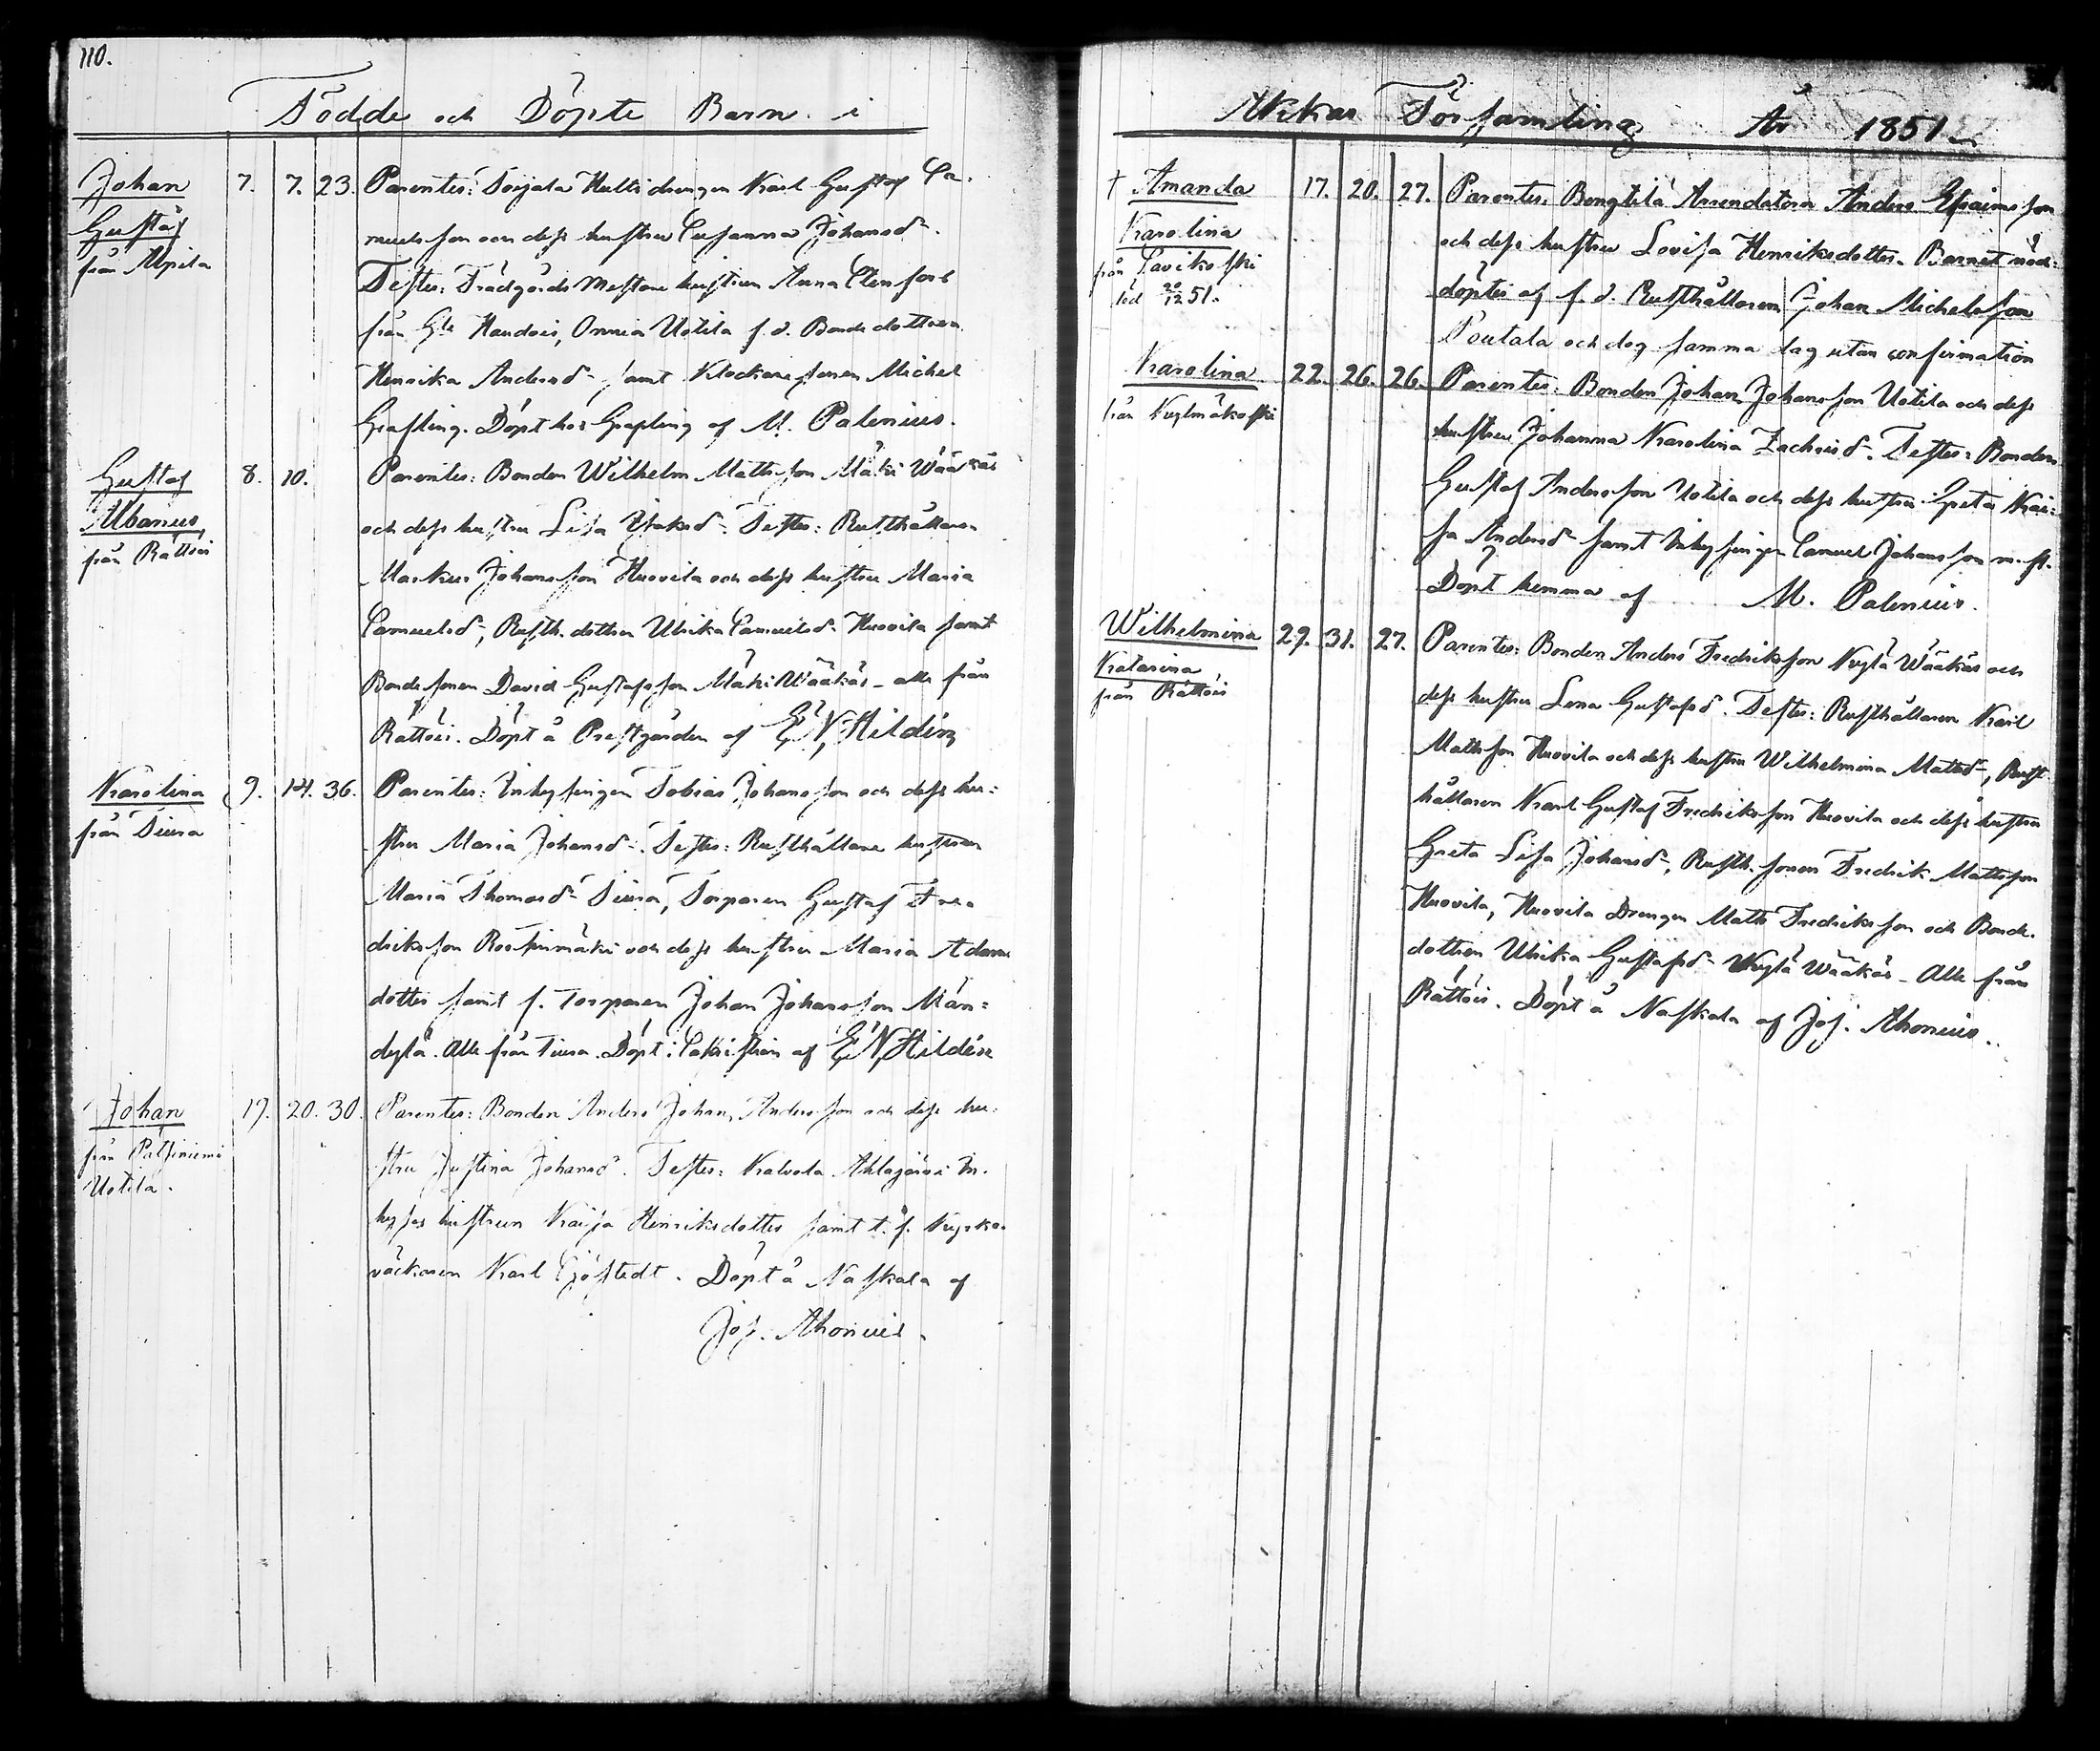 110.
Födde och Döpte Barn i
Johan 7. 7. 23. Parentes: Torjala Hutti drengen Karl Gustaf Sa-
Gustaf muelsson och dess hustru Susanna Johansdr.
från Alpila Testes: Trädgårds Mästare hustrun Anna Stenfors
från Gle Handois, Onnia Uotila f. d. Bonde dottren
Henrika Andersdr samt Klockare sonen Michel
Grefling. Döpt hos Grefling af M. Palenius.
Gustaf 8. 10. Parentes: Bonden Wilhelm Mattsson Mäki Wääkäs
Albanus och dess hustru Lisa Isaksdr. Testes: Rusthållaren
från Rättöis Markus Johansson Huovila och dess hustru Maria
Samuelsdr, Rusth. dottren Ulrika Samuelsdr Huovila samt
Bondesonen David Gustafsson Mäki Wääkäs - alla från
Rättöis. Döpt å Prestgården af E N Hildén
Karolina 9. 14. 36. Parentes: Inhysingen Tobias Johansson och dess hu-
från Tiura stru Maria Johansdr. Testes: Rusthållare hustrun
Maria Thomasdr Tiura, Torparen Gustaf Fre
driksson Rospinmäki och dess hustru Maria Adams
dotter samt f. Torparen Johan Johansson Män-
dylä. Alla från Tiura. Döpt i Sakristian af E N Hildén
Johan 19. 20. 30. Parentes: Bonden Anders Johan Andersson och dess hu-
från Patsiniemi stru Justina Johansdr. Testes: Kalvola Ahlajärvi In-
Uotila. hyses hustrun Kaisa Henriksdotter samt t. f. Kyrko-
väckaren Karl Sjöstedt. Döpt å Naskala af
Jos. Ahonius.
Akkas Församling År 1851
† Amanda 17. 20. 27. Parentes. Bengtilä Arrendatorn Anders Efraimsson
Karolina och dess hustru Lovisa Henriksdotter. Barnet nöd-
från Savikoski döptes af f. d. Rusthållaren Johan Michelsson
död 20/12 51. Poutala och dog samma dag utan confirmation
Karolina 22. 26. 26. Parentes: Bonden Johan Johansson Uotila och dess
från Kylmäkoski hustru Johanna Karolina Zachrisdr. Testes: Bonden
Gustaf Andersson Uotila och dess hustru Greta Kai-
sa Andersdr samt Inhysingen Samuel Johansson m. fl.
Döpt hemma af M. Palenius.
Wilhelmina 29. 31. 27. Parentes: Bonden Anders Fredriksson Kylä Wääkäs och
Katarina dess hustru Lena Gustafsdr. Testes: Rusthållaren Karl
från Rättöis Mattsson Huovila och dess hustru Wilhelmina Mattsdr, Rust-
hållaren Karl Gustaf Fredriksson Huovila och dess hustru
Greta Lisa Johansdr, Rusth. sonen Fredrik Mattsson
Huovila, Huovila Drengen Matts Fredriksson och Bonde-
dottren Ulrika Gustafsdr Kylä Wääkäs - Alla från
Rättöis. Döpt å Naskala af Jos. Ahonius.